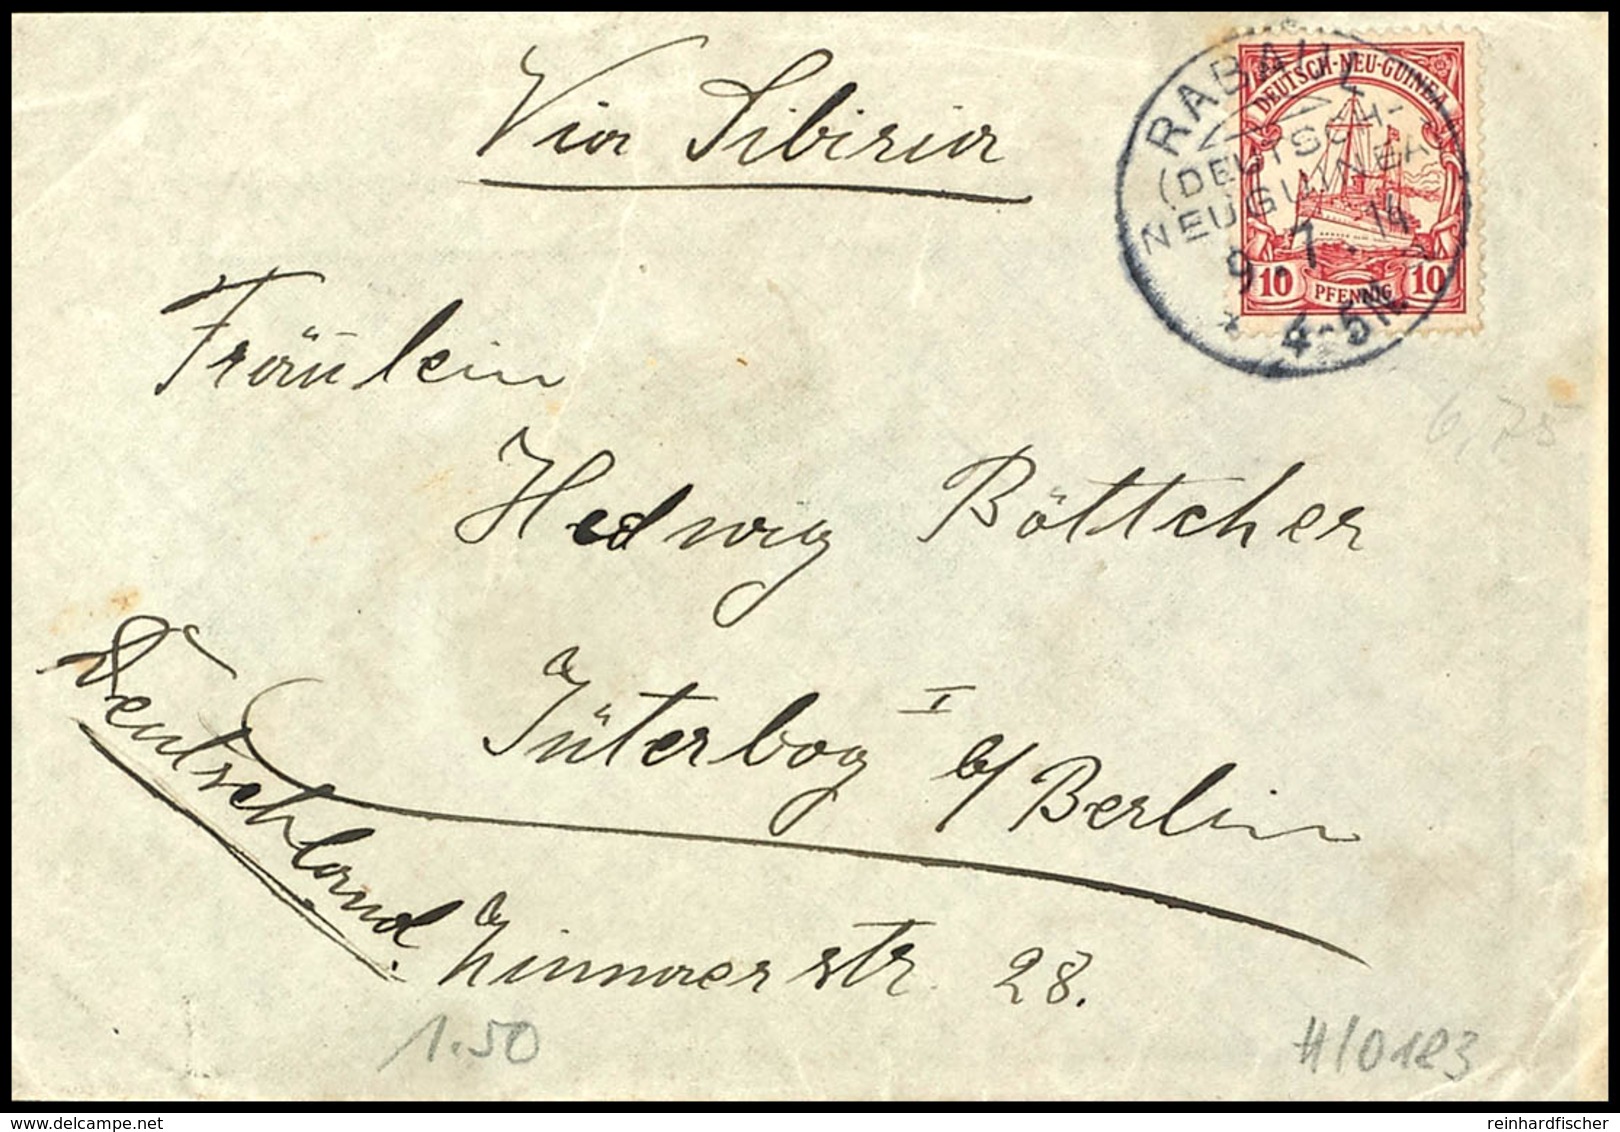 Via Sibiria
DEUTSCH-NEU-GUINEA
10 PFENNIG 10
RABAUL
(DEUTSCH-
NEUGUINEA)
9.7.14
* 4-5N.
6,75
Fräulein
Hedwig Böttcher
Jüterbog I b/Berlin
Deutschland.
Zinnaerstr. 28.
1.50
delcampe.net
reinhardfischer